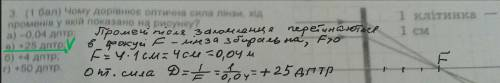 3. (1 бал) Чому дорівнює оптична сила лінзи, хід
променів у якій показано на рисунку?
а) –0,04 дптр
в) +25 дптр V
б) +4 дптр
г) +50 дптр
Промені після заломлення перетинаються
в фокусі F – лінза збиральна, F>0
F = 4·1см = 4см = 0,04м
Опт. сила D = 1/F = 1/0,04 = +25 дптр
1 клітинка –
1 см
F